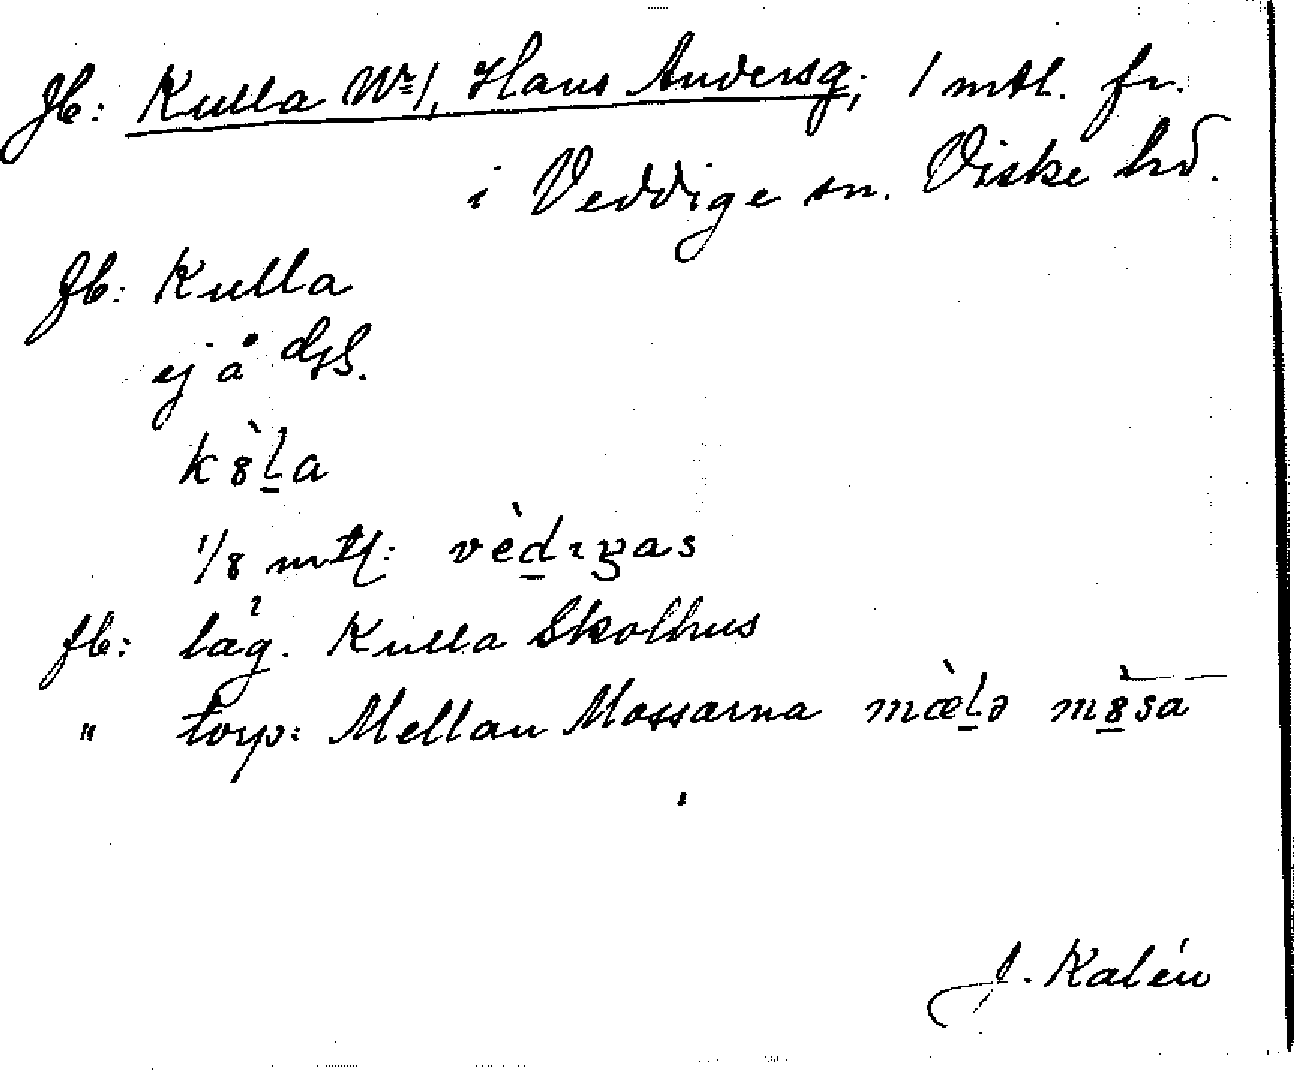 Jb: Kulla No 1, Hans Andersg; 1 mtl. fr.
i Veddige sn. Viske hd.
Jb: Kulla
ej å
k8̀l̠a
1/8 mtl: vèd̠ıgas
fb: läg. Kulla Skolhus
" torp: Mellan Mossarna mæ̀l̠ə m8̠̀sa
J. Kalén